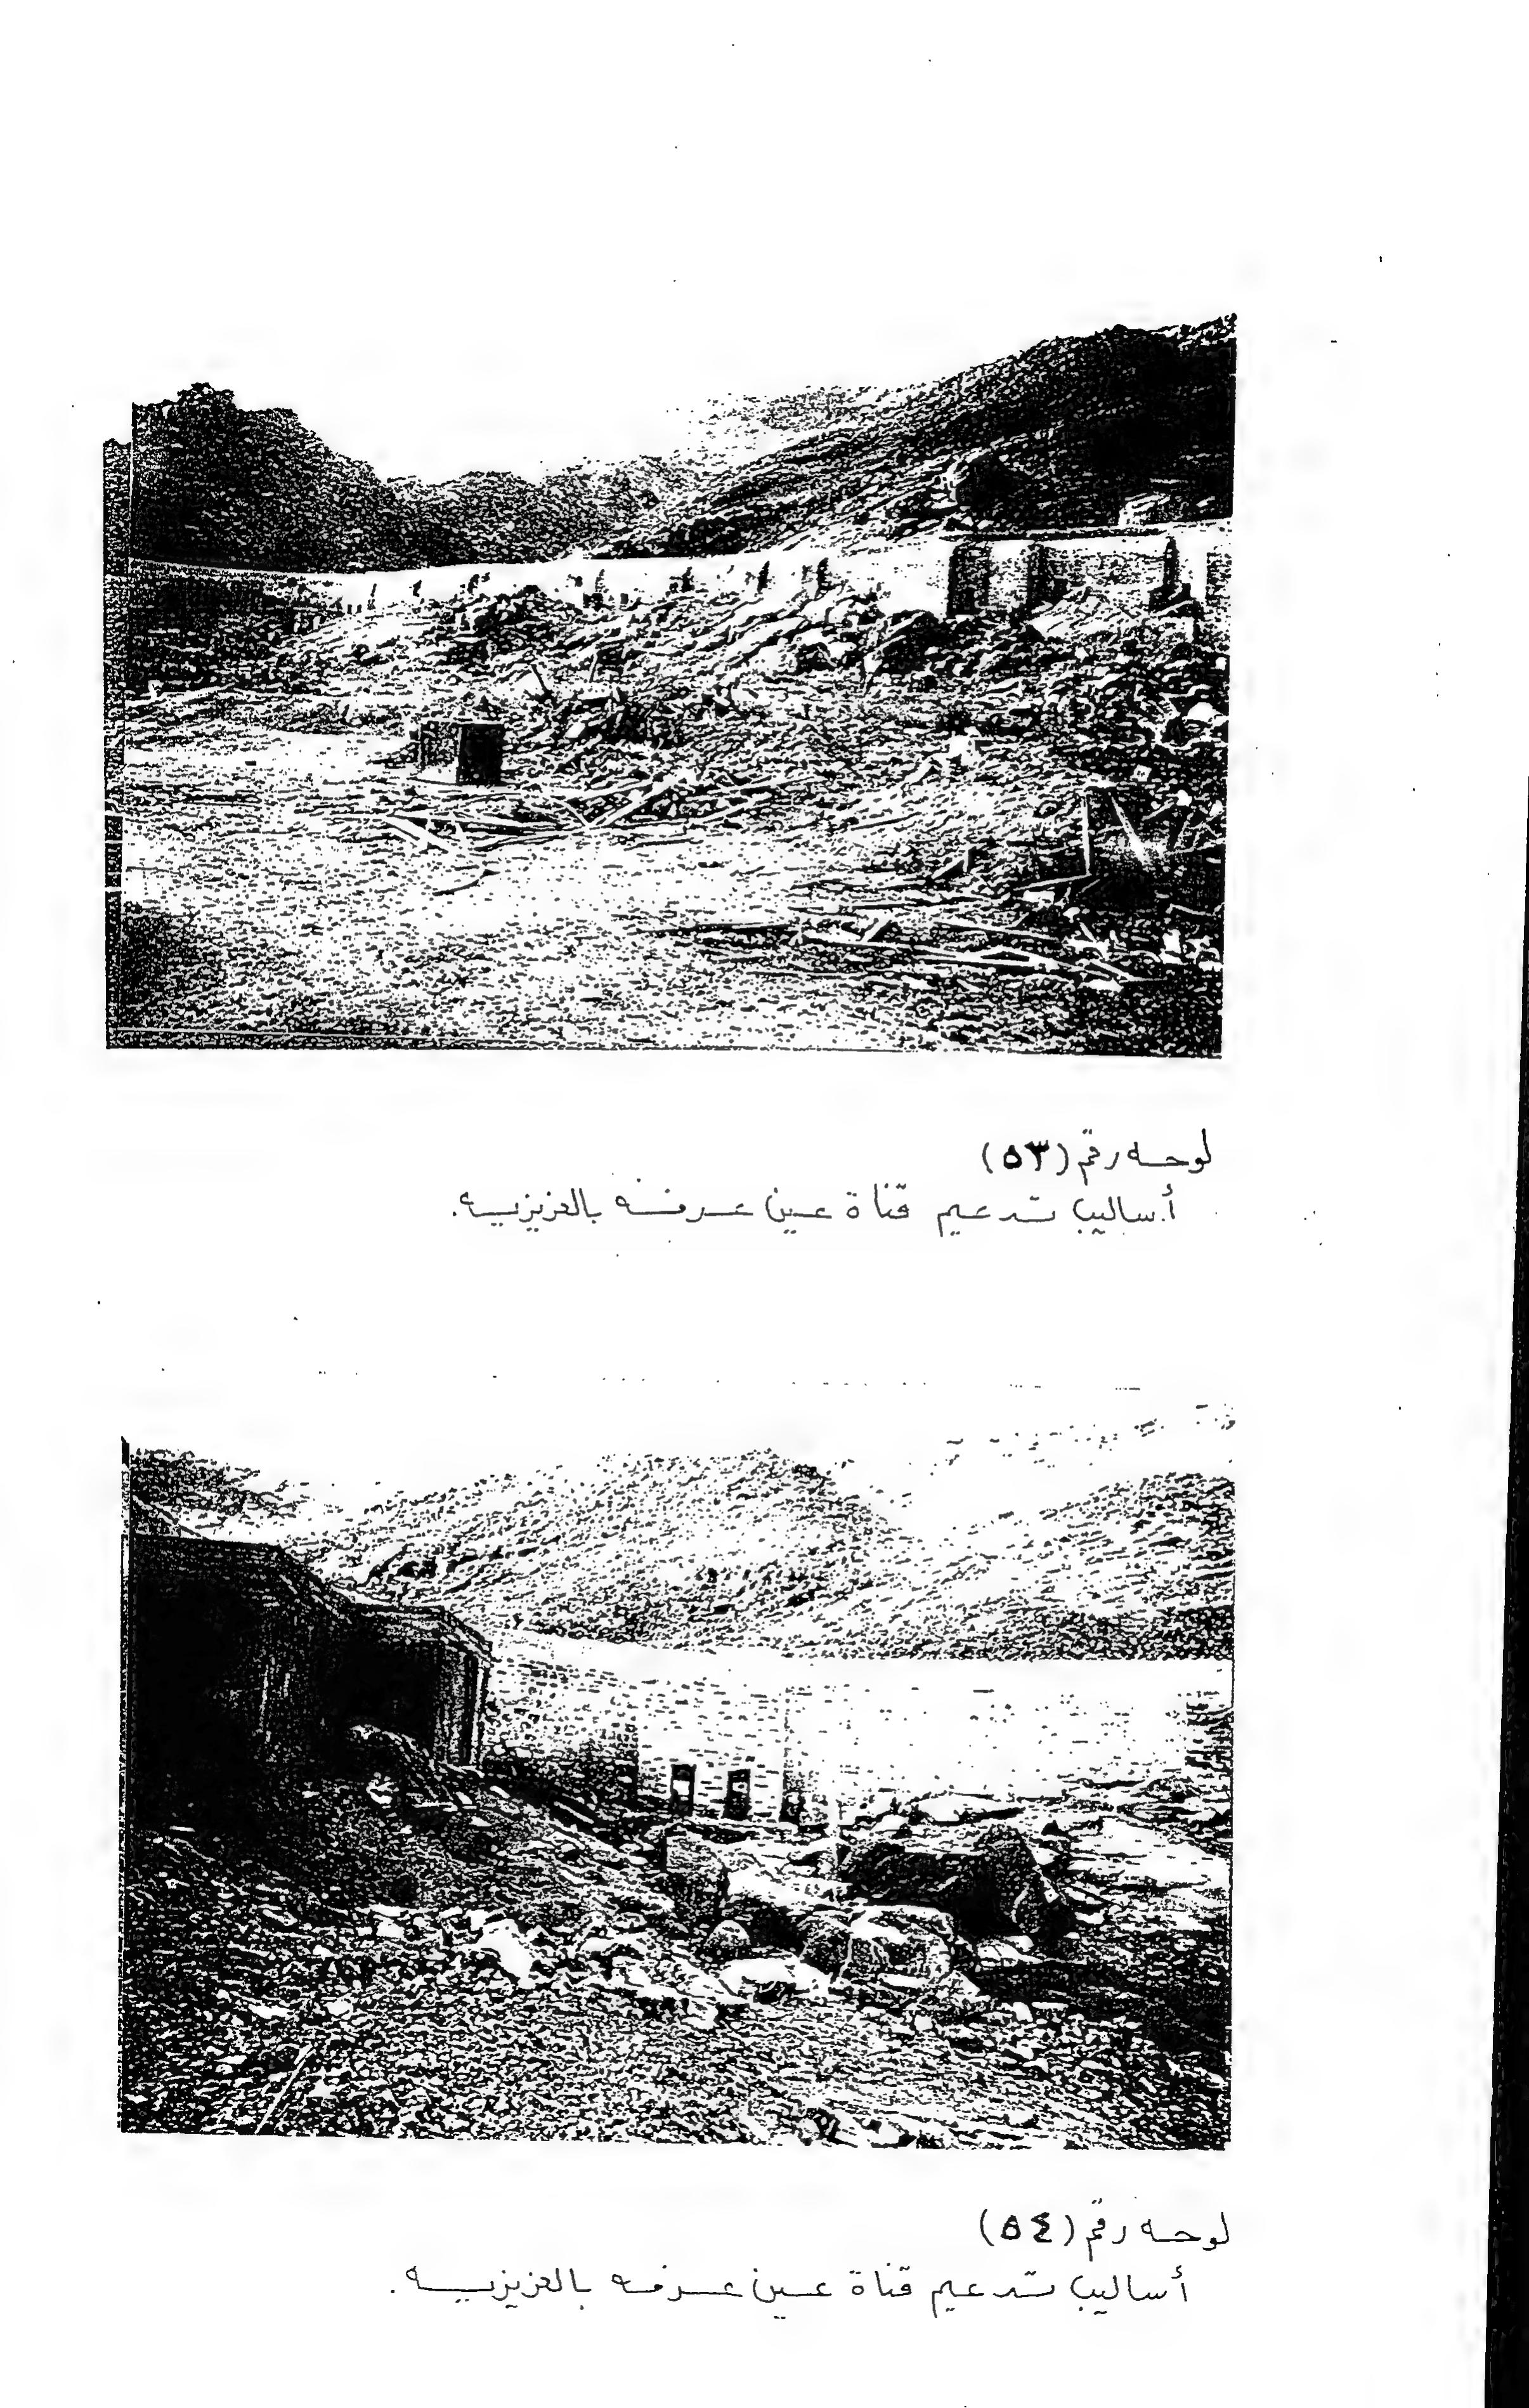 لوحه رقم (٥٣)
أساليب تدعيم قناة عين عرفه بالعزيزيه.
لوحه رقم (٥٤)
أساليب تدعيم قناة عين عرفه بالعزيزيه.